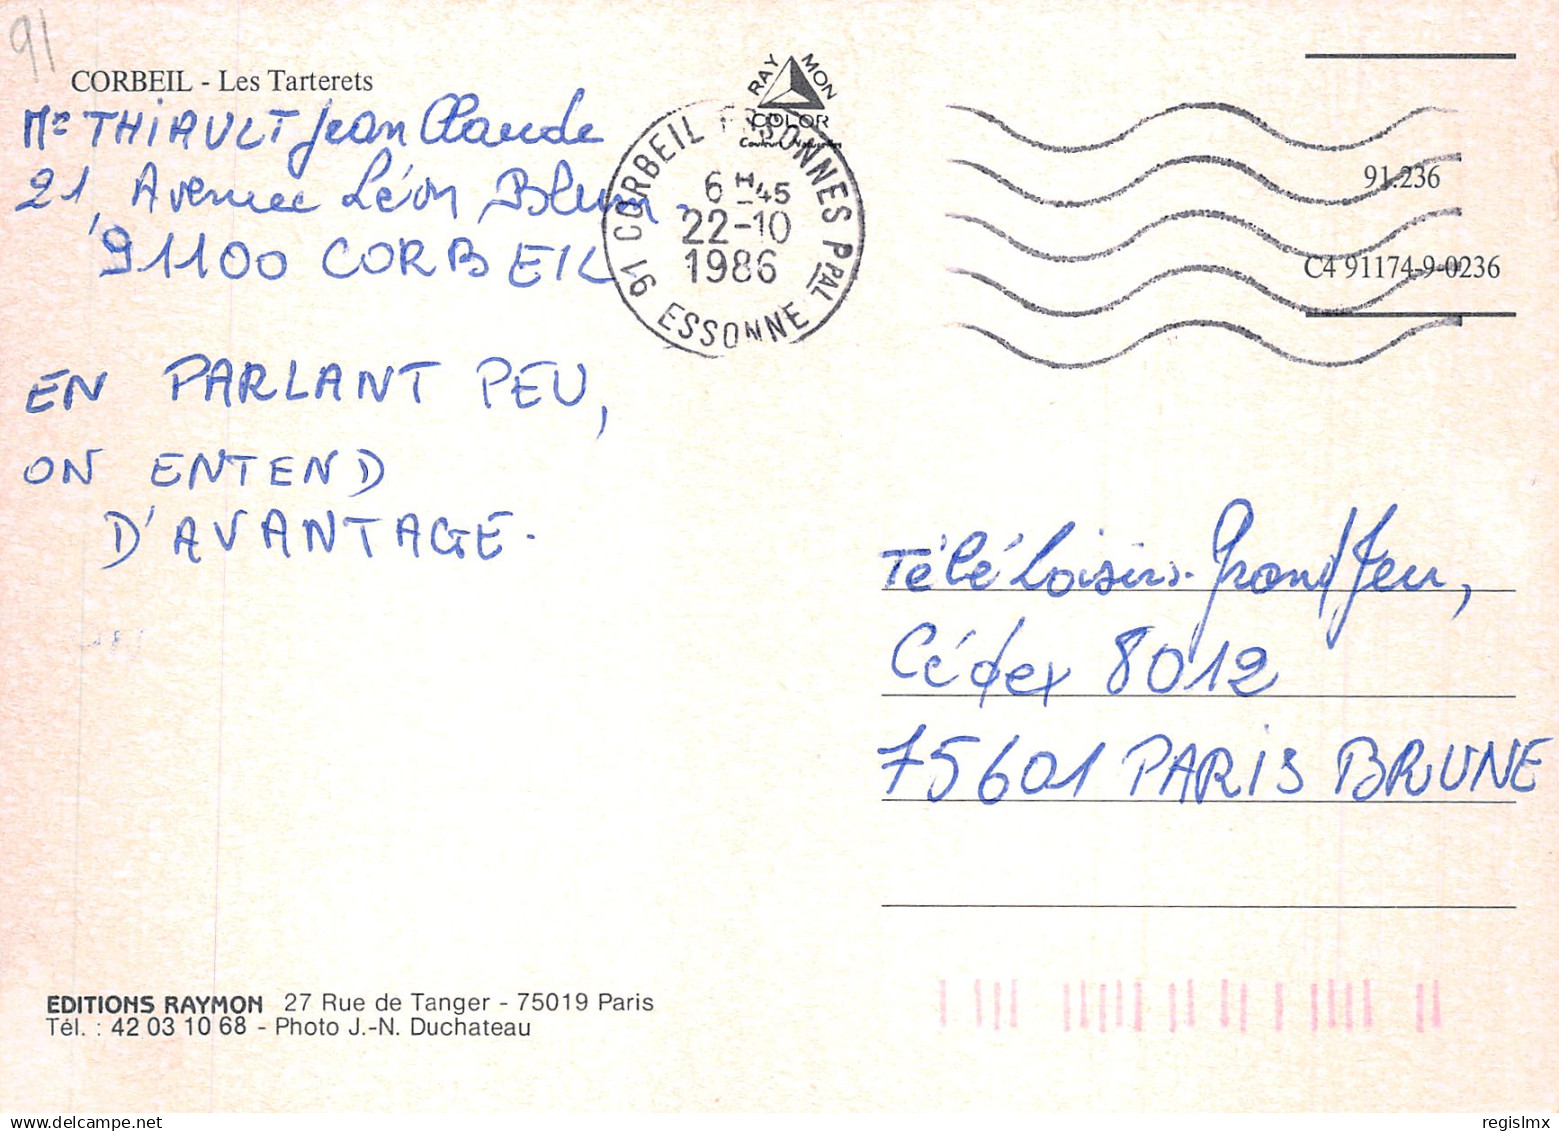 91
CORBEIL - Les Tarterets
Mr THIAULT Jean Claude
21, Avenue Léon Blum
91100 CORBEIL
EN PARLANT PEU,
ON ENTEND
D'AVANTAGE.
EDITIONS RAYMON 27 Rue de Tanger - 75019 Paris
Tél. : 42 03 10 68 - Photo J.-N. Duchateau
RAYMON
COLOR
91 CORBEIL ESSONNES PPAL
6 H 45
22-10
1986
ESSONNE
91.236
C4 91174-9-0236
Télé Loisirs. Grand Jeu,
Cédex 8012
75601 PARIS BRUNE
delcampe.net
regislmx